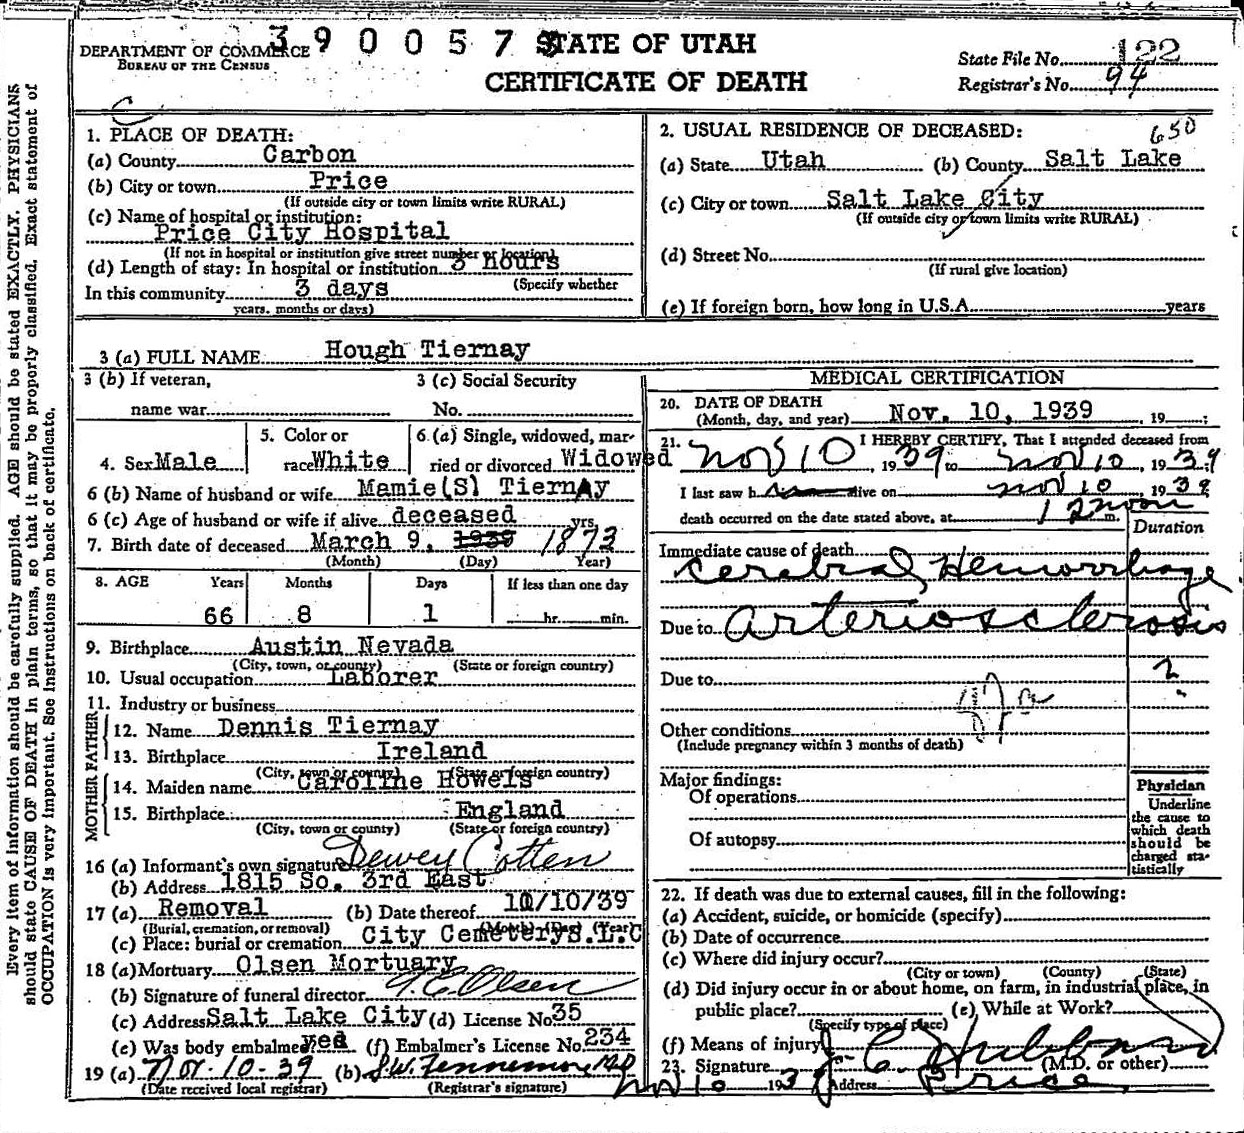 DEPARTMENT OF COMMERCE
BUREAU OF THE CENSUS
390057
STATE OF UTAH
CERTIFICATE OF DEATH
State File No. 122
Registrar's No. 94
C
1. PLACE OF DEATH:
(a) County Carbon
(b) City or town Price
(If outside city or town limits write RURAL)
(c) Name of hospital or institution:
Price City Hospital
(If not in hospital or institution give street number or location)
(d) Length of stay: In hospital or institution 3 hours
(Specify whether
In this community 3 days
years, months or days)
2. USUAL RESIDENCE OF DECEASED: 650
(a) State Utah (b) County Salt Lake
(c) City or town Salt Lake City
(If outside city or town limits write RURAL)
(d) Street No.
(If rural give location)
(e) If foreign born, how long in U.S.A. years
3 (a) FULL NAME Hough Tiernay
3 (b) If veteran, name war
3 (c) Social Security No.
4. Sex Male
5. Color or race White
6 (a) Single, widowed, married or divorced Widowed
6 (b) Name of husband or wife Mamie(S) TiernAy
6 (c) Age of husband or wife if alive deceased yrs.
7. Birth date of deceased March 9, 1939 1873
(Month) (Day) Year)
8. AGE Years Months Days If less than one day
66 8 1 hr. min.
9. Birthplace Austin Nevada
(City, town, or county) (State or foreign country)
10. Usual occupation Laborer
11. Industry or business
FATHER
12. Name Dennis Tiernay
13. Birthplace Ireland
(City, town or county) (State or foreign country)
MOTHER
14. Maiden name Caroline Howels
15. Birthplace England
(City, town or county) (State or foreign country)
16 (a) Informant's own signature Dewey Cotten
(b) Address 1815 So. 3rd East
17 (a) Removal (b) Date thereof 10/10/39
(Burial, cremation, or removal) (Month) (Day) (Year)
(c) Place: burial or cremation City Cemetery S.L.C
18 (a) Mortuary Olsen Mortuary
(b) Signature of funeral director Olsen
(c) Address Salt Lake City (d) License No. 35
(e) Was body embalmed? yes (f) Embalmer's License No. 234
19 (a) Nov. 10-39 (b)
(Date received local registrar) (Registrar's signature)
MEDICAL CERTIFICATION
20. DATE OF DEATH
(Month, day, and year) Nov. 10, 1939 , 19 ;
21. I HEREBY CERTIFY, That I attended deceased from
Nov 10, 1939 to Nov 10, 1939;
I last saw h alive on Nov 10, 1939
death occurred on the date stated above, at 12 noon m.
Duration
Immediate cause of death
Cerebral Hemorrhage
Due to Arteriosclerosis
Due to ?
Other conditions
(Include pregnancy within 3 months of death)
Major findings:
Of operations
Of autopsy
Physician
Underline
the cause to
which death
should be
charged sta-
tistically
22. If death was due to external causes, fill in the following:
(a) Accident, suicide, or homicide (specify)
(b) Date of occurrence
(c) Where did injury occur?
(City or town) (County) (State)
(d) Did injury occur in or about home, on farm, in industrial place, in
public place? (e) While at Work?
(Specify type of place)
(f) Means of injury
23. Signature J. C. Hubbard (M.D. or other)
Nov 10 1939 Address Price
Every item of information should be carefully supplied. AGE should be stated EXACTLY. PHYSICIANS
should state CAUSE OF DEATH in plain terms, so that it may be properly classified. Exact statement of
OCCUPATION is very important. See instructions on back of certificate.